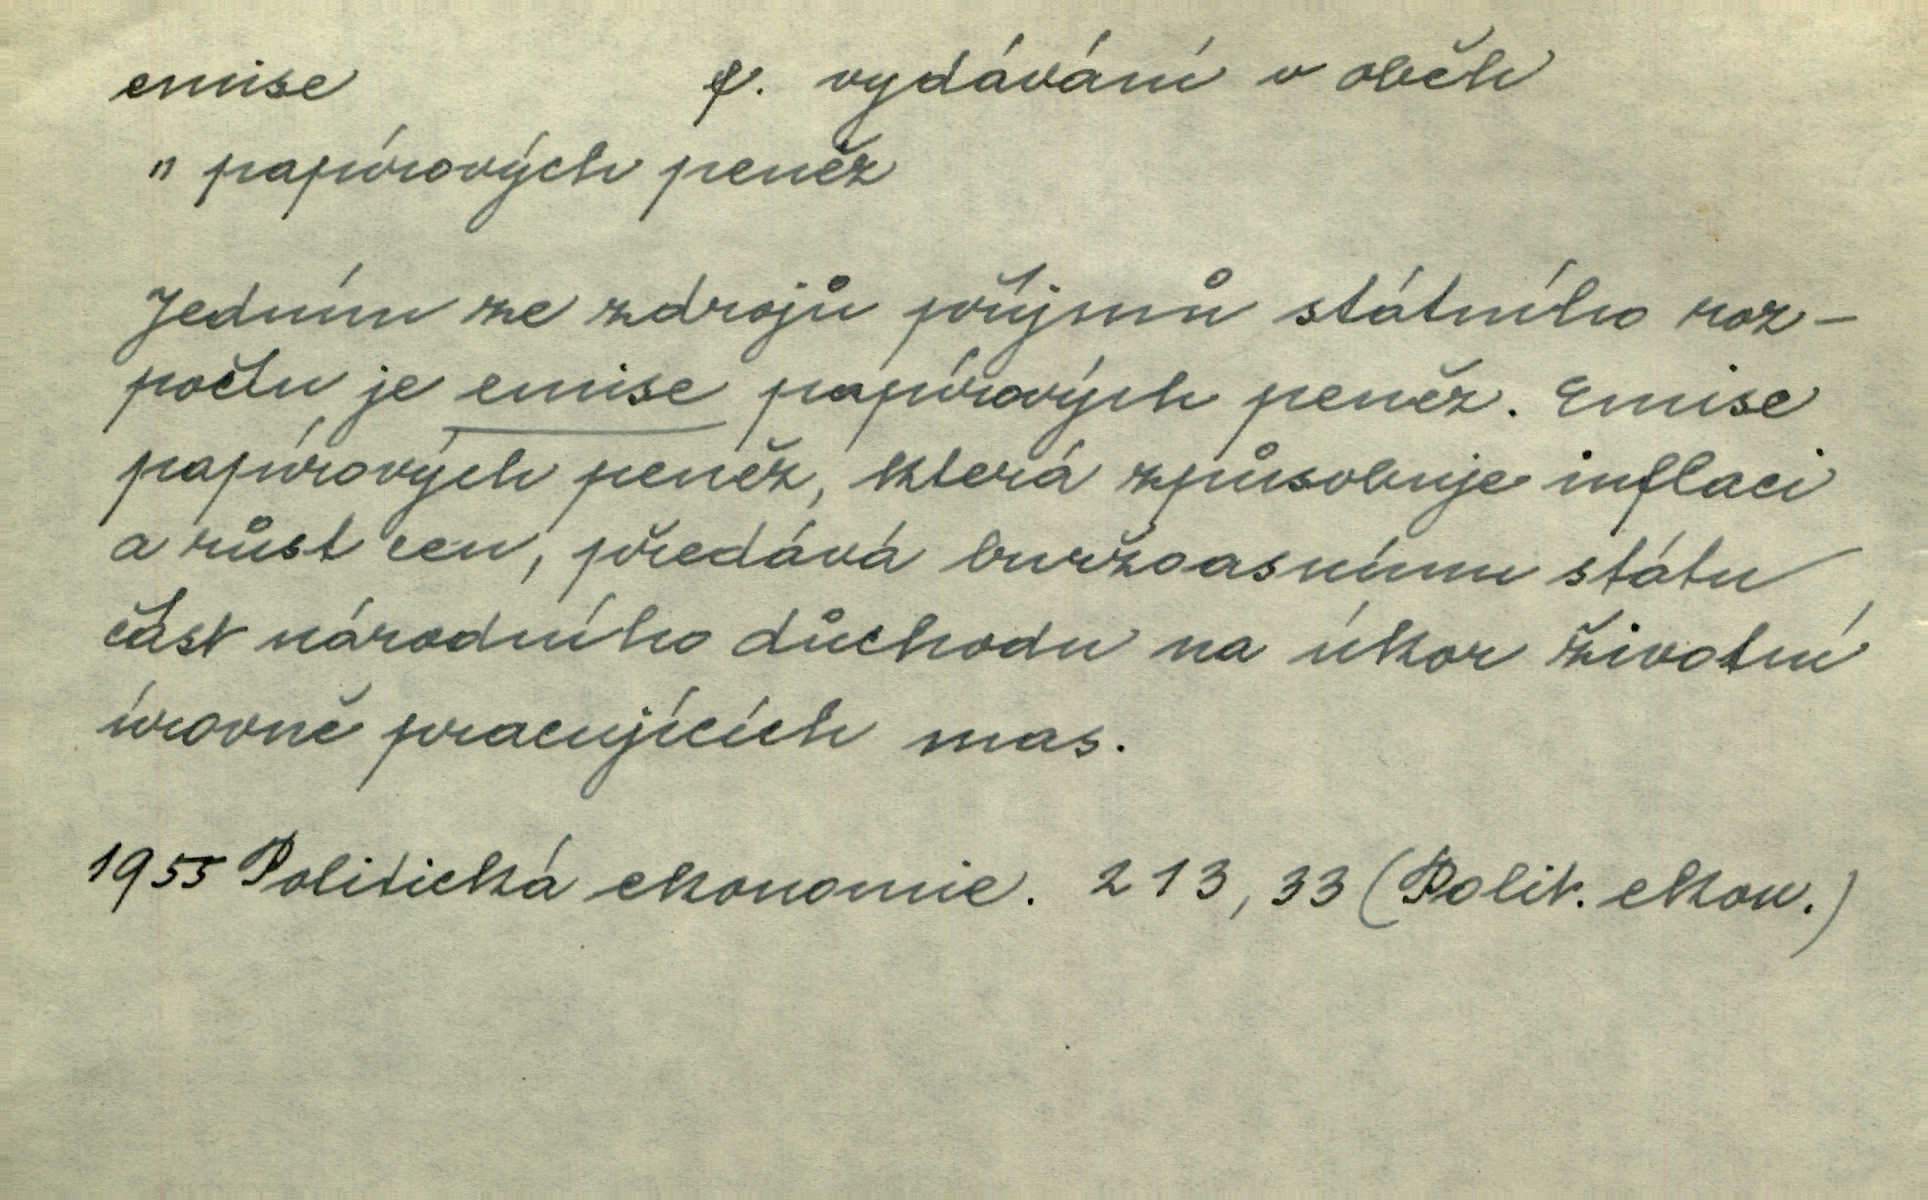 emise f. vydávání v oběh
" papírových peněz
Jedním ze zdrojů příjmů státního roz-
počtu je emise papírových peněz. Emise
papírových peněz, která způsobuje inflaci
a růst cen, předává buržoasnímu státu
část národního důchodu na úkor životní
úrovně pracujících mas.
1955 Politická ekonomie. 213, 33 (Polit. ekon.)